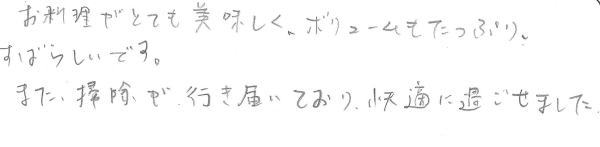 お料理がとても美味しく、ボリュームもたっぷり、
すばらしいです。
また、掃除が行き届いており、快適に過ごせました。